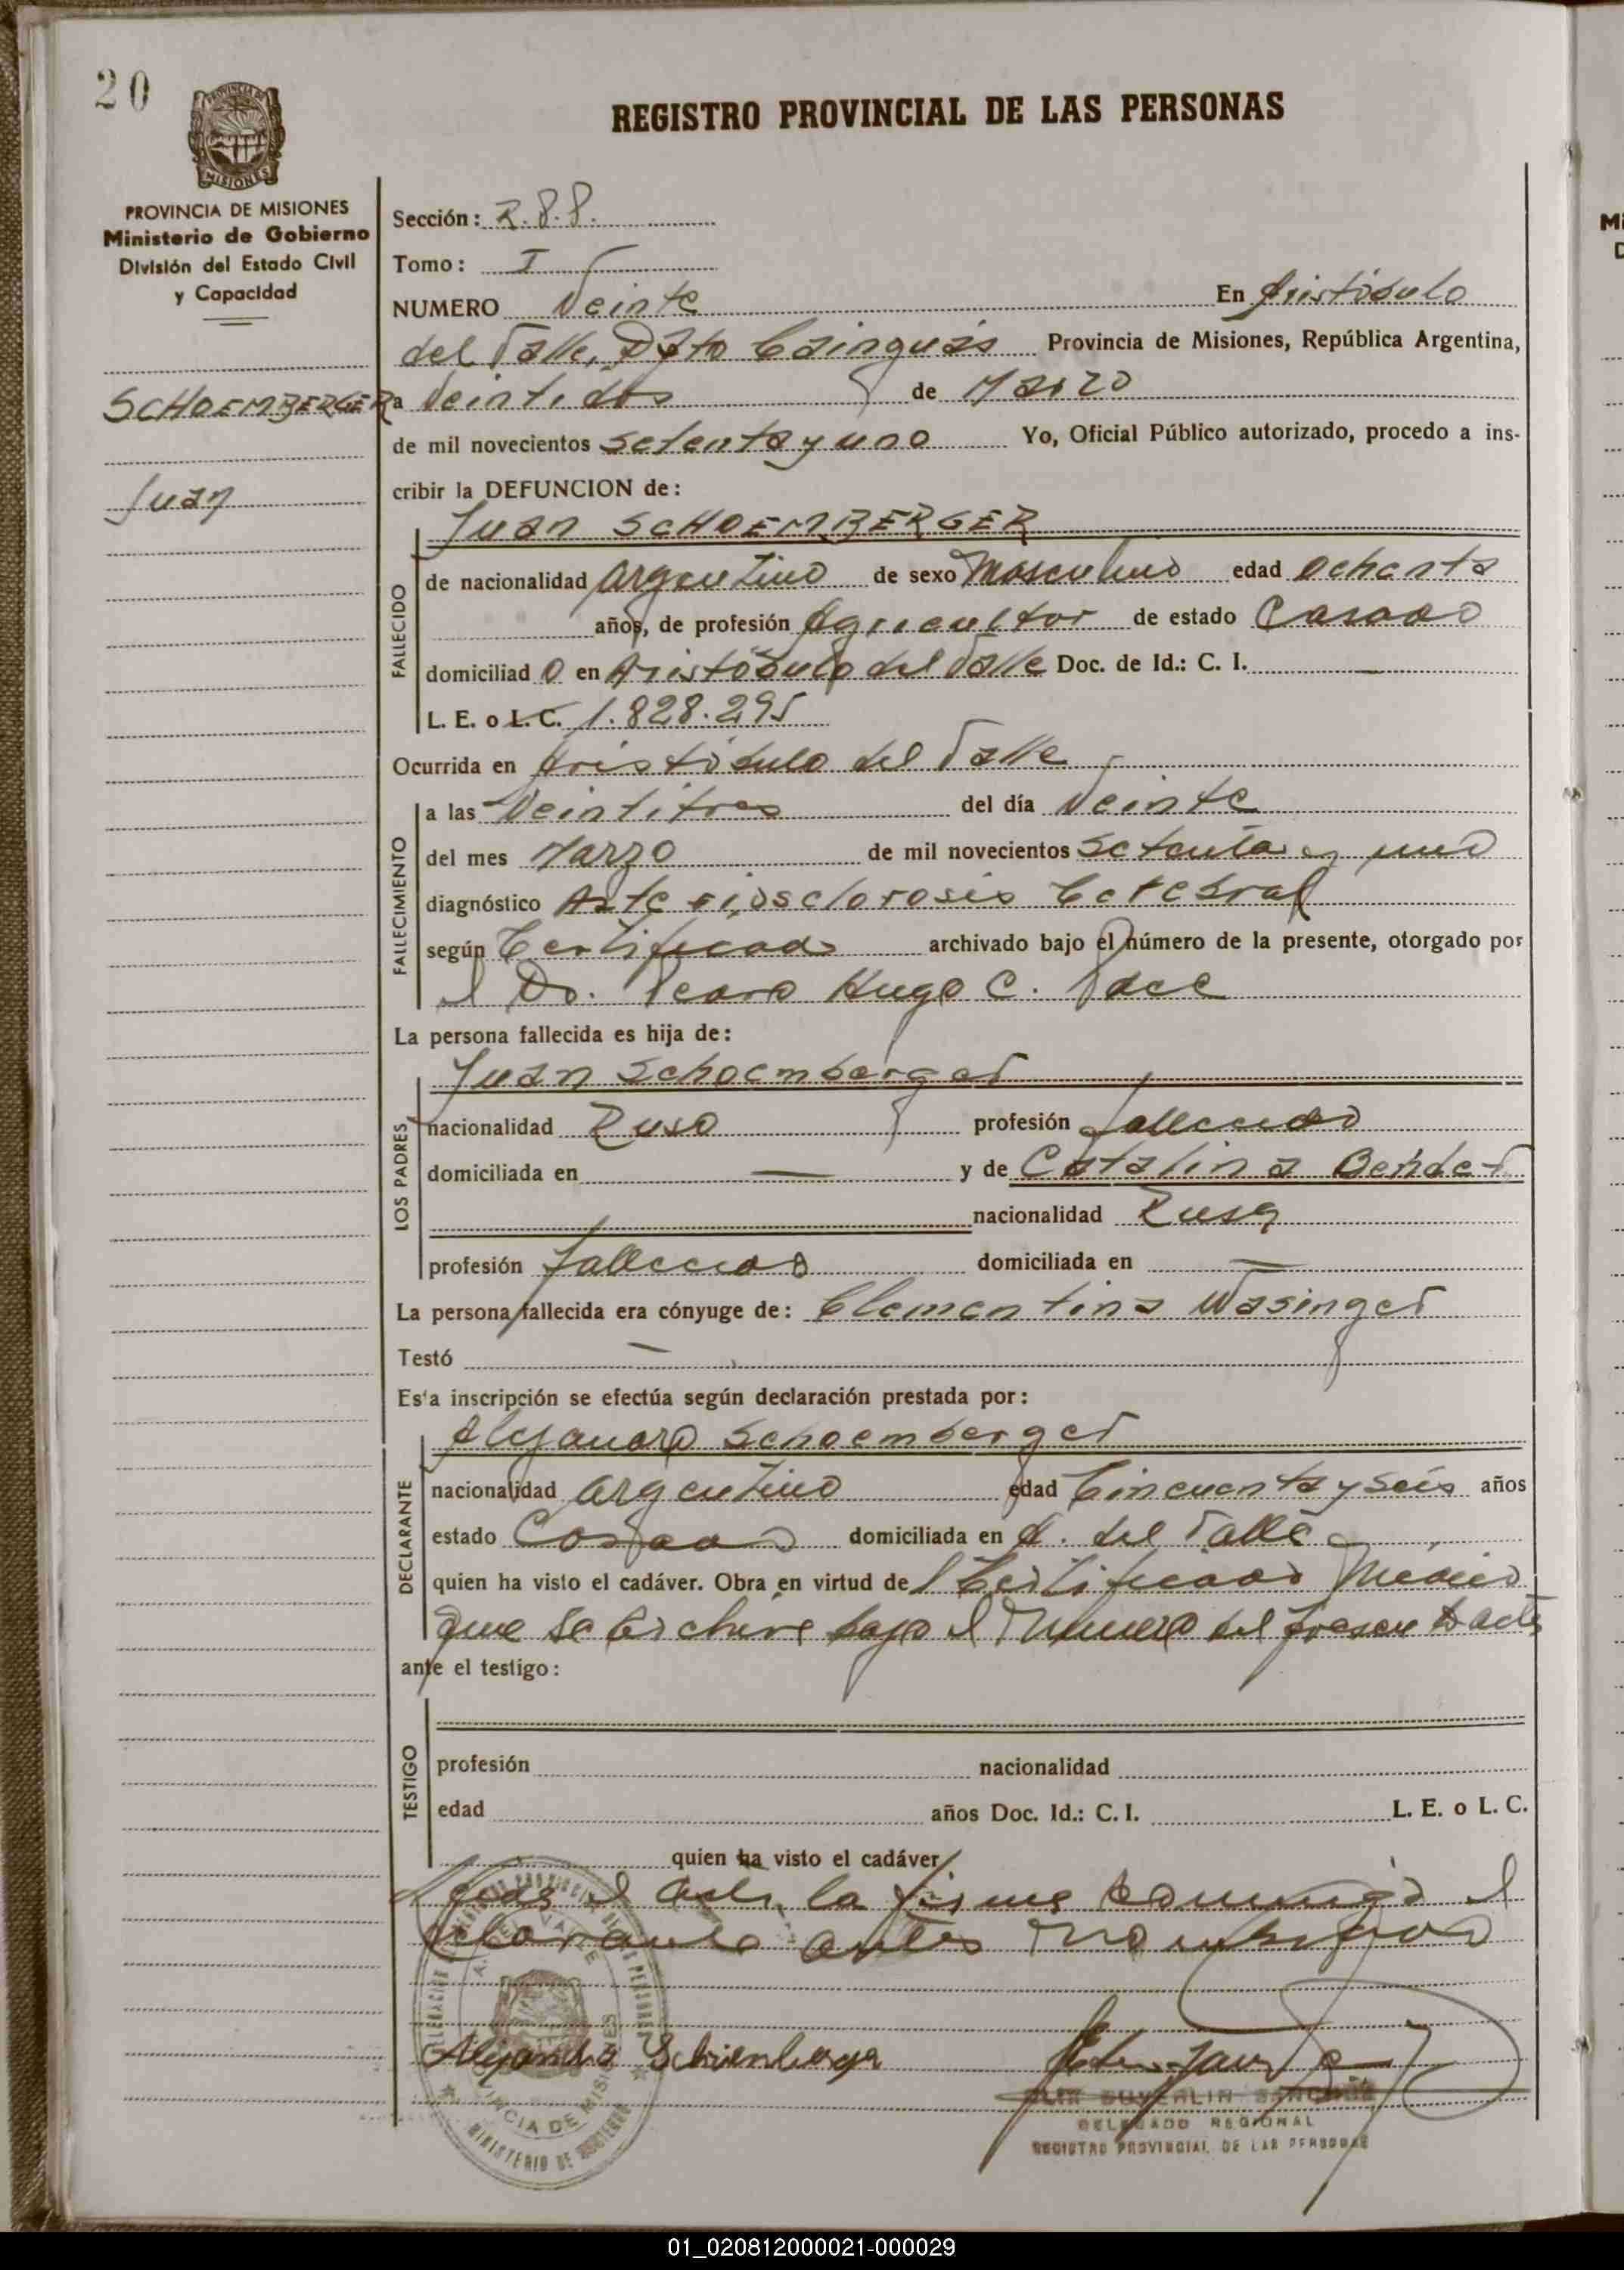 20
PROVINCIA DE
MISIONES
REGISTRO PROVINCIAL DE LAS PERSONAS
PROVINCIA DE MISIONES
Ministerio de Gobierno
División del Estado Civil
y Capacidad
SCHOEMBERGER
Juan
Sección: R.8.8.
Tomo: I
NUMERO Veinte En Aristóbulo
del Valle, Dpto Cainguás Provincia de Misiones, República Argentina,
a Veintidós de Marzo
de mil novecientos setenta y uno Yo, Oficial Público autorizado, procedo a ins-
cribir la DEFUNCION de:
Juan SCHOEMBERGER
FALLECIDO
de nacionalidad argentino de sexo Masculino edad ochenta
años, de profesión Agricultor de estado Casado
domiciliad o en Aristóbulo del Valle Doc. de Id.: C. I. —
L. E. o L. C. 1.828.295
Ocurrida en Aristóbulo del Valle
FALLECIMIENTO
a las Veintitres del día Veinte
del mes Marzo de mil novecientos setenta y uno
diagnóstico Arteriosclorosis Cerebral
según Certificado archivado bajo el número de la presente, otorgado por
el Dr. Pedro Hugo C.
La persona fallecida es hija de:
Juan Schoemberger
LOS PADRES
nacionalidad Ruso profesión fallecido
domiciliada en — y de Catalina Bender
nacionalidad Rusa
profesión fallecida domiciliada en —
La persona fallecida era cónyuge de: Clementina Wasinger
Testó —
Esta inscripción se efectúa según declaración prestada por:
Alejandro Schoemberger
DECLARANTE
nacionalidad argentino edad Cincuenta y seis años
estado Casado domiciliada en A. del Valle
quien ha visto el cadáver. Obra en virtud de Certificado Médico
que se archiva bajo el Número del presente acta
ante el testigo:
TESTIGO
profesión nacionalidad
edad años Doc. Id.: C. I. L. E. o L. C.
quien ha visto el cadáver
el acta, la firma conmigo el
declarante antes
Alejandro Schoenberger
DELEGADO REGIONAL
REGISTRO PROVINCIAL DE LAS PERSONAS
PROVINCIA DE MISIONES
MINISTERIO DE GOBIERNO
01_020812000021-000029